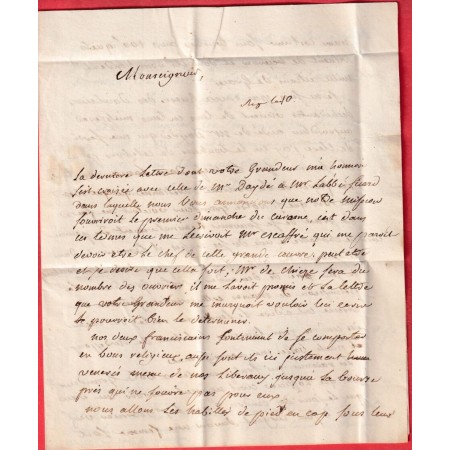 Monseigneur,
la derniere lettre dont votre Grandeur ma honnoré
s'est croisée avec celle de Mr Daydé à Mr l'abbé
dans laquelle nous vous , que notre mission
s'ouvriroit le premier dimanche du careme, c'est dans
ces termes que me l'ecrivoit Mr escaffré qui me paroit
devoir etre le chef de celle grande œuvre peut etre
et je pense que cella soit, Mr de sera du
nombre des ouvriers il me l'avoit promis et la lettre
que votre Grandeur me marquoit vouloir lui ecrire
le pourroit bien le determiner.
nos deux franciscains continuent de se comporter
en bons religieux, aussi sont ils ici justement
venerés meme de nos liberaux jusqu'à la bourse
près qui ne s'ouvre pas pour eux.
nous allons les habiller de pied en cap sous leur